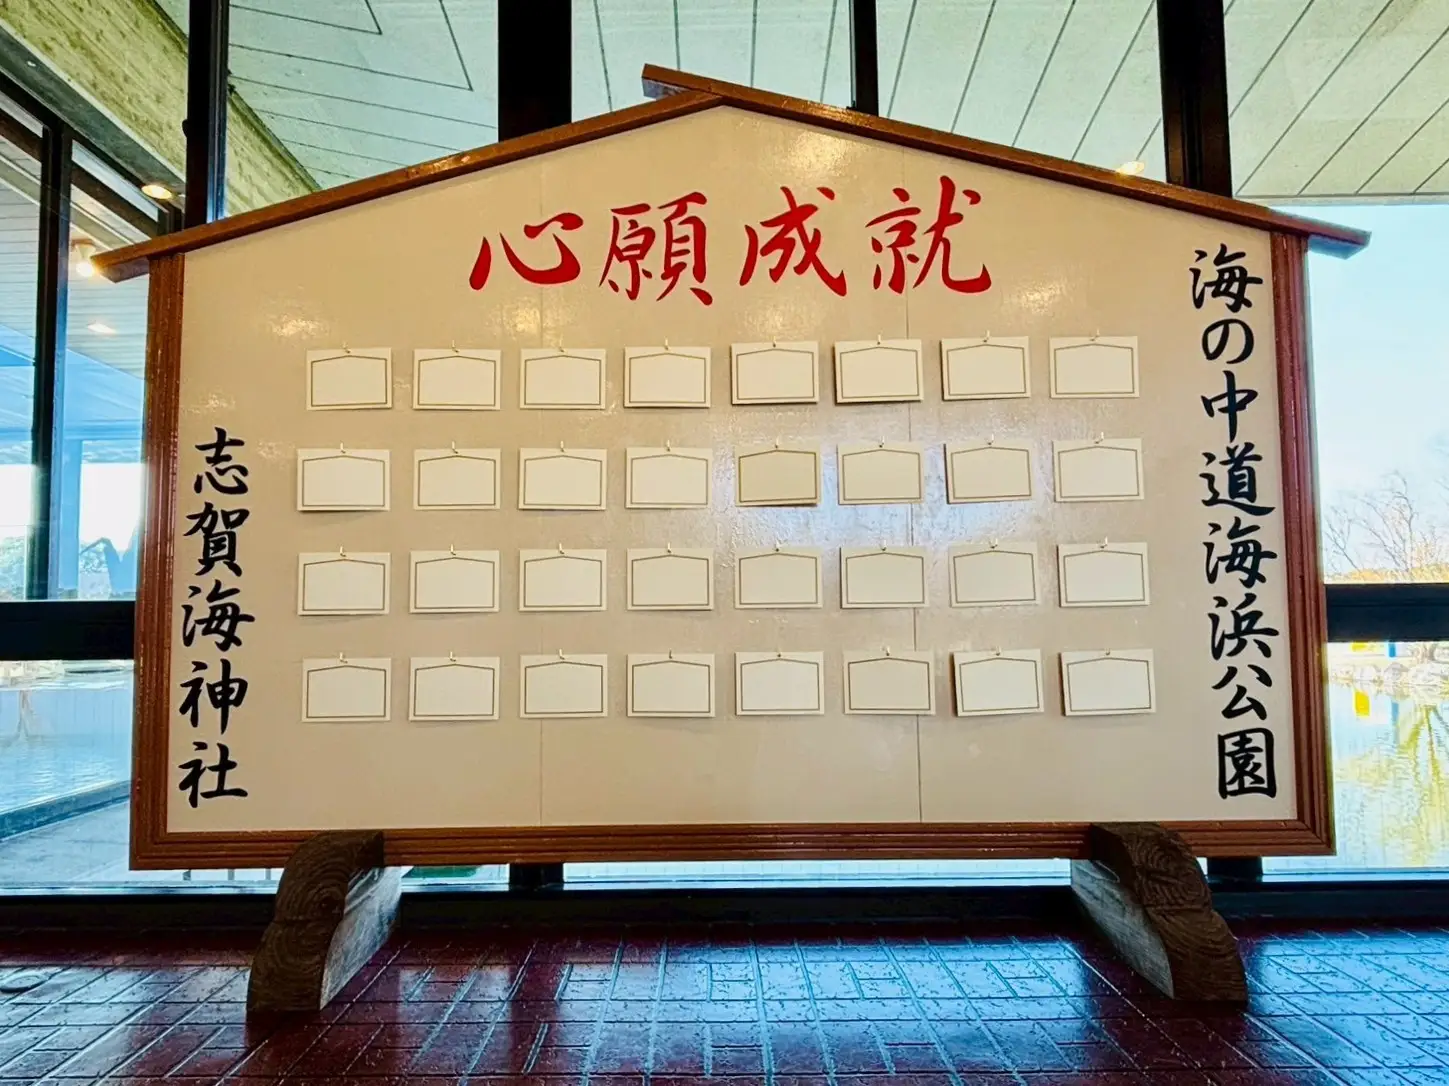 心願成就
海の中道海浜公園
志賀海神社